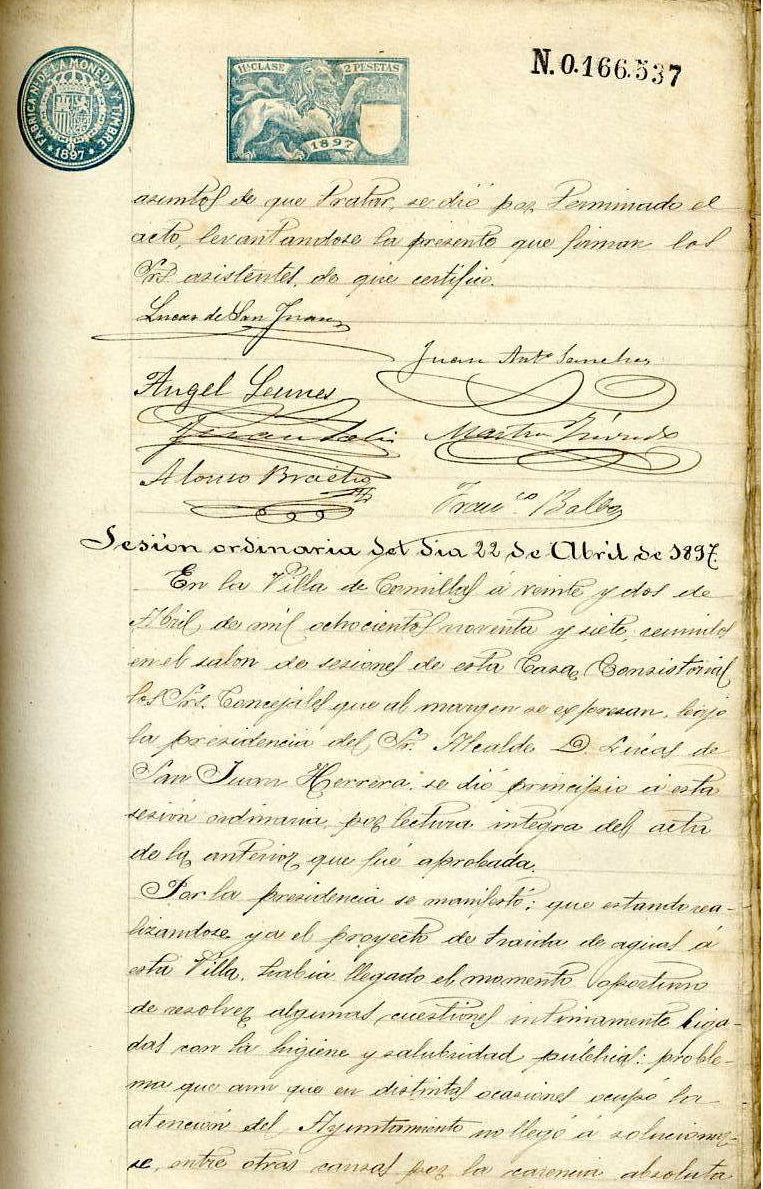 FÁBRICA Nl. DE LA MONEDA Y TIMBRE
* 1897 *
11ª CLASE 2 PESETAS
1897
N.0.166.537
asuntos de que tratar, se dió por terminado el
acto, levantandose la presente que firman los
Srs. asistentes, de que certifico.
Lucas de San Juan
Juan Antº Sanchez
Angel
Juan
Martin
Alonso
Franco. Balbo
Sesión ordinaria del dia 22 de Abril de 1897.
En la Villa de Comillas á veinte y dos de
Abril de mil ochocientos noventa y siete, reunidos
en el salon de sesiones de esta Casa Consistorial
los Srs. Concejales que al margen se expresan, bajo
la presidencia del Sr. Alcalde D. Lucas de
San Juan Herrera, se dió principio á esta
sesión ordinaria, por lectura integra del acta
de la anterior que fué aprobada.
Por la presidencia se manifestó: que estando rea-
lizandose ya el proyecto de traida de aguas á
esta Villa, habia llegado el momento oportuno
de resolver algunas cuestiones intimamente liga-
das con la higiene y salubridad públicas: proble-
ma que aun que en distintas ocasiones ocupó la
atención del Ayuntamiento no llegó á solucionar-
se, entre otras causas por la carencia absoluta